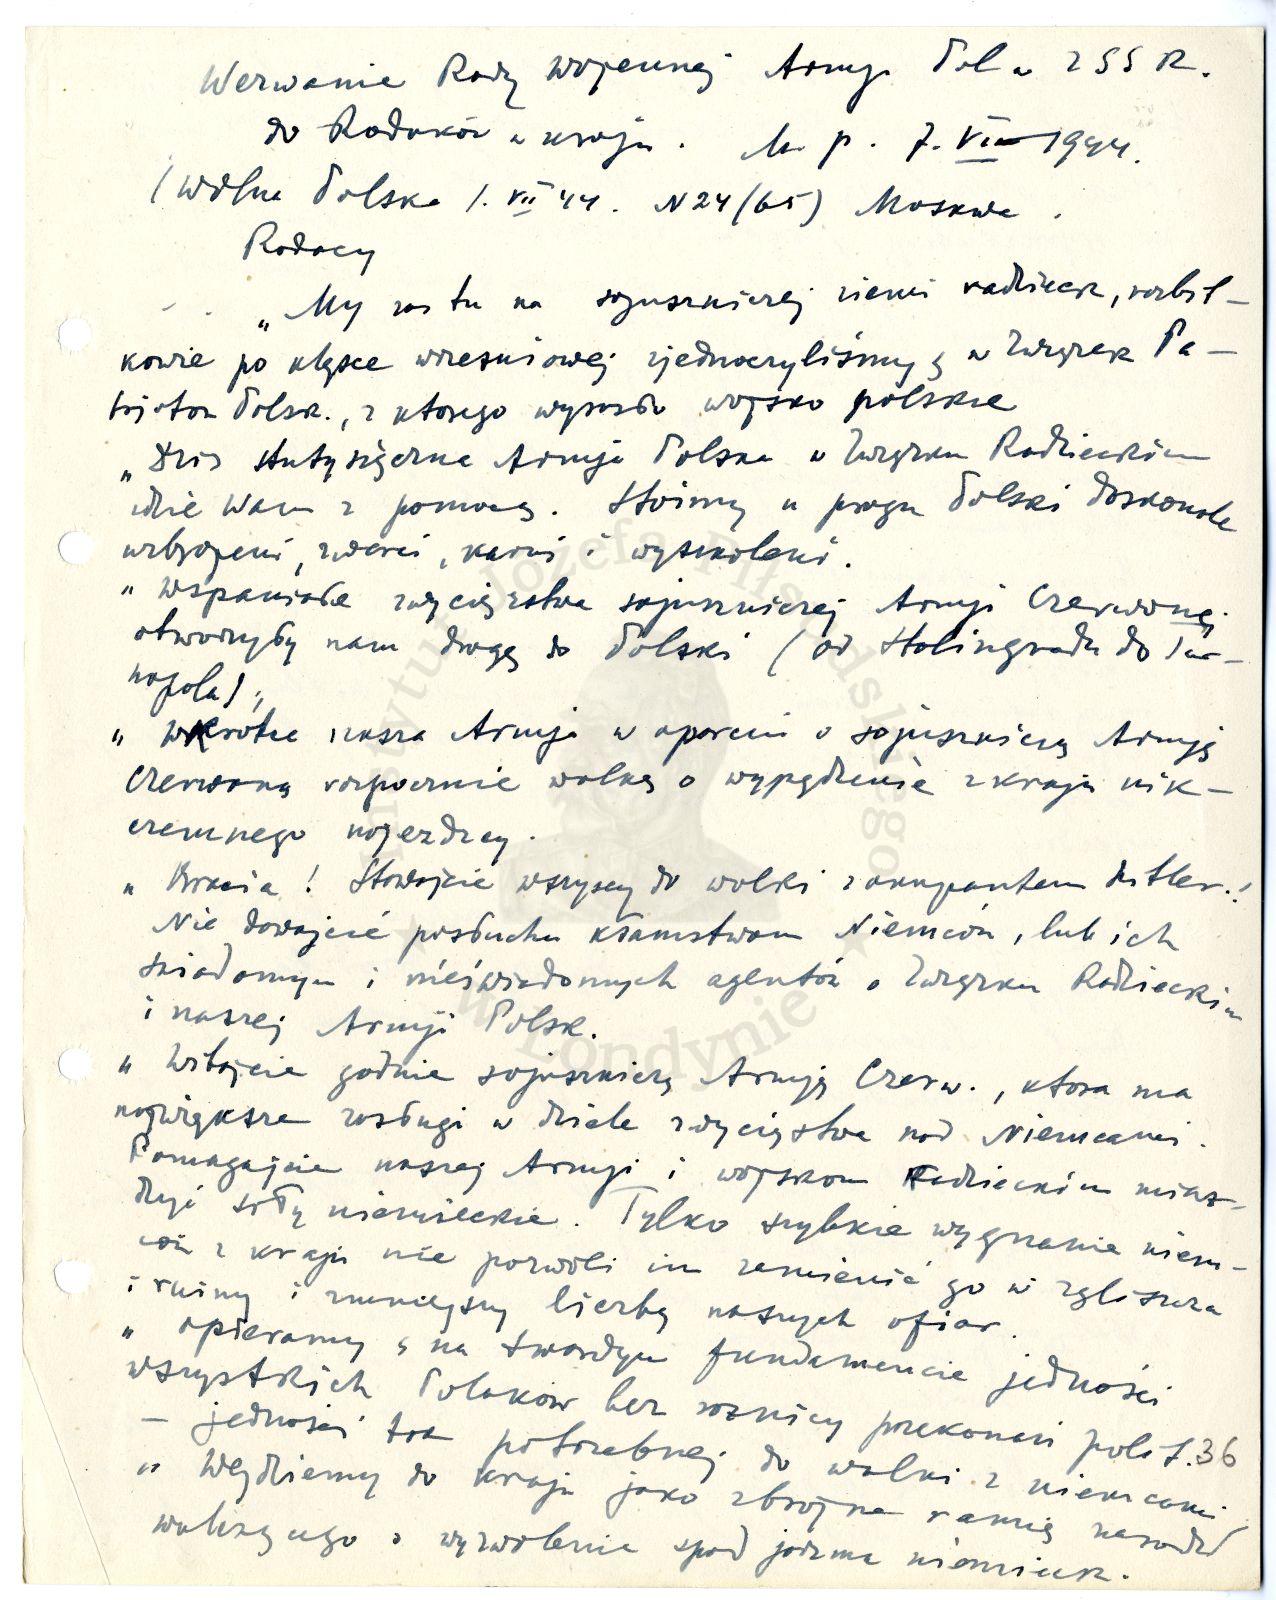 Wezwanie Rady Wojennej Armji Pol w ZSSR.
do Rodaków w kraju. M. p. 7. VI 1944.
(Wolna Polska 1. VII 44. N24(65) Moskwa.
Rodacy
"My zaś tu na sojuszniczej ziemi radzieck, rozbit-
kowie po klęsce wrześniowej zjednoczyliśmy ę w Związek Pa-
trjotów Polsk., z którego wyrosło wojsko polskie
"Dziś stutysięczna Armja Polska w Związku Radzieckim
idzie Wam z pomocą. Stoimy u progu Polski doskonale
uzbrojeni, zwarci, karni i wyszkoleni.
"Wspaniałe zwycięstwa sojuszniczej Armji Czerwonej
otworzyły nam drogę do Polski (od Stalingradu do Tar-
nopola)"
"Wkrótce nasza Armja w oparciu o sojuszniczą Armję
Czerwoną rozpocznie walkę o wypędzenie z kraju nik-
czemnego najeźdzcy.
"Bracia! Stawajcie wszyscy do walki z okupantem hitler.!
Nie dawajcie posłuchu kłamstwom Niemców, lub ich
świadomych i nieświadomych agentów o Związku Radzieckim
i naszej Armji Polsk.
"Witajcie godnie sojuszniczą Armję Czerw., która ma
największe zasługi w dziele zwycięstwa nad Niemcami.
Pomagajcie naszej Armji i wojskom Radzieckim miaż-
dżyć siły niemieckie. Tylko szybkie wygnanie niem-
ców z kraju nie pozwoli im zamienić go w zgliszcza
i ruiny i zmniejszy liczbę naszych ofiar.
"Opieramy ę na twardym fundamencie jedności
wszystkich Polaków bez różnicy przekonań polit.
36
- jedności tak potrzebnej do walki z niemcami
"Wejdziemy do kraju jako zbrojne ramię narodu
walczącego o wyzwolenie spod jarzma niemieck.
Instytut Józefa Piłsudskiego
w Londynie